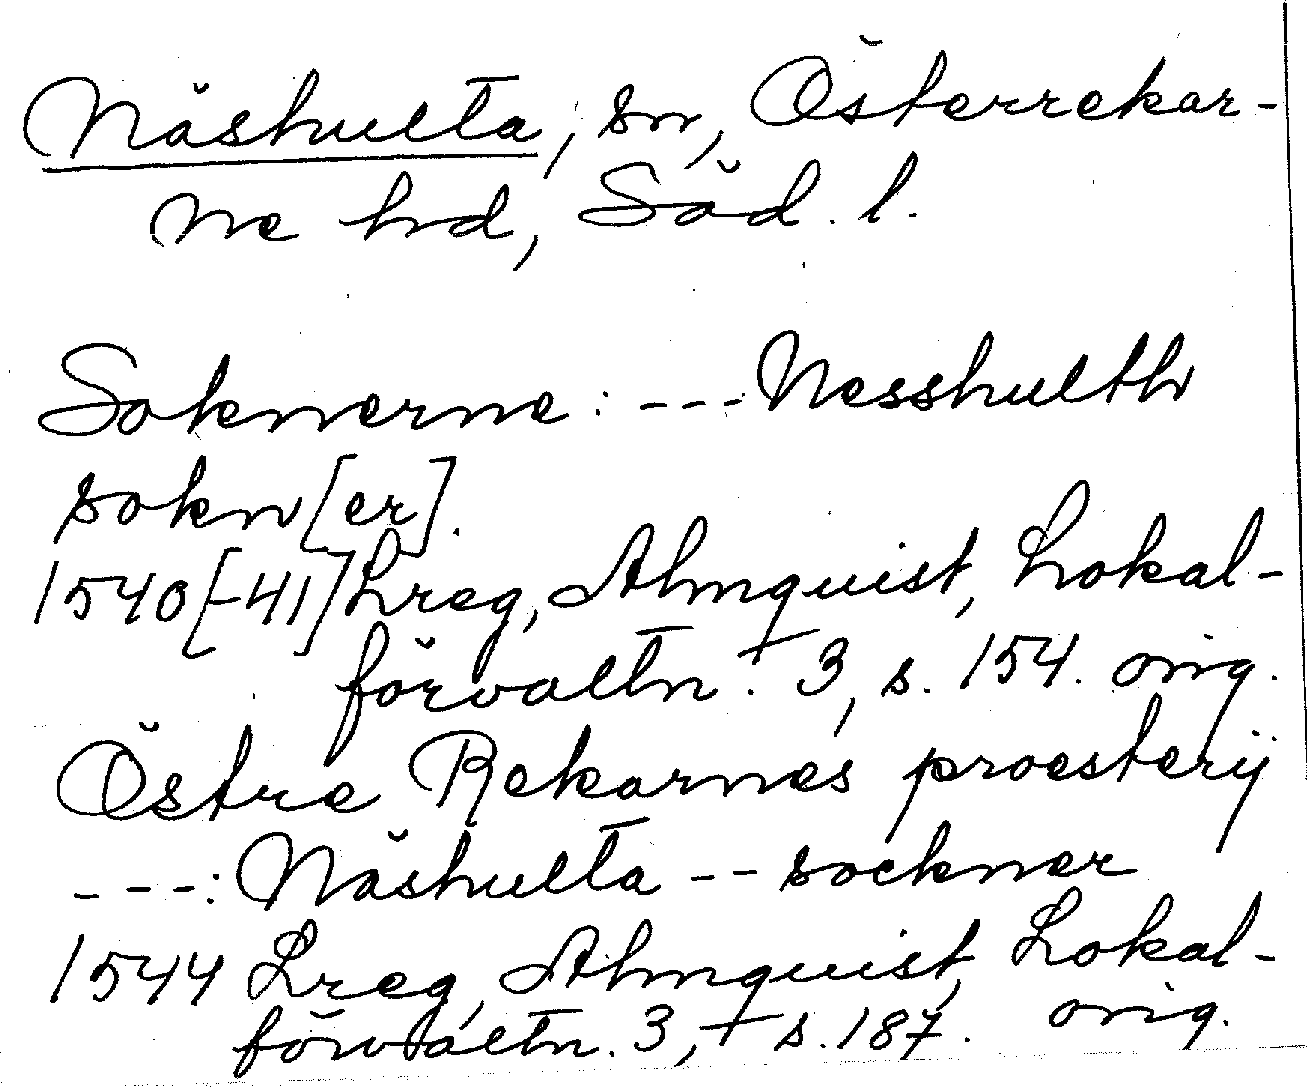 Näshulta, sn, Österrekar-
ne hd, Söd. l.
Soknerne: --- Nesshulth
sokn[er].
1540[-41] Lreg, Almquist, Lokal-
förvaltn. † 3, s. 154. orig.
Östre Rekarnes proesterij
---: Näshulta -- sockner
1544 Lreg, Almquist, Lokal-
förvaltn. 3, † s. 187. orig.